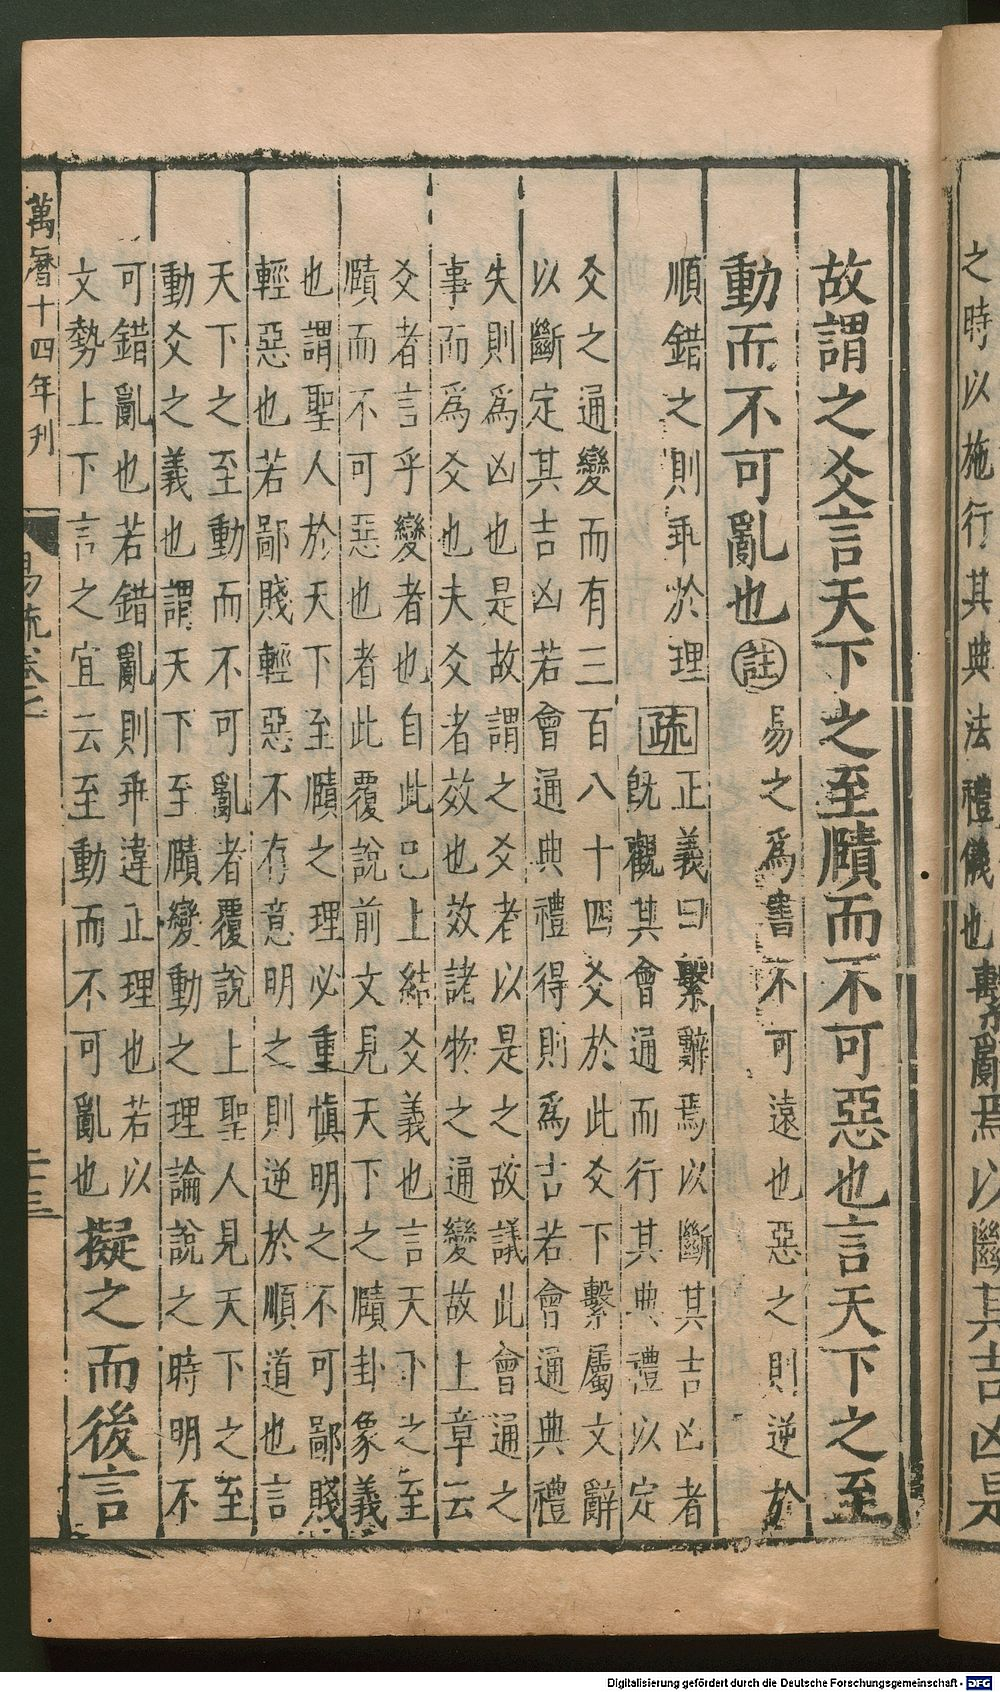 之時以施行其典法禮儀也繫辭焉以斷其吉凶是
故謂之爻言天下之至賾而不可惡也言天下之至
動而不可亂也 註 易之為書不可遠也惡之則逆於
順錯之則乖於理 疏 正義曰繫辭焉以斷其吉凶者
旣觀其會通而行其典禮以定
爻之通變而有三百八十四爻於此爻下繫屬文辭
以斷定其吉凶若會通典禮得則爲吉若會通典禮
失則爲凶也是故謂之爻者以是之故議此會通之
事而爲爻也夫爻者效也效諸物之通變故上章云
爻者言乎變者也自此已上結爻義也言天下之至
賾而不可惡也者此覆說前文見天下之賾卦象義
也謂聖人於天下至賾之理必重慎明之不可鄙賤
輕惡也若鄙賤輕惡不存意明之則逆於順道也言
天下之至動而不可亂者覆說上聖人見天下之至
動爻之義也謂天下至賾變動之理論說之時明不
可錯亂也若錯亂則乖違正理也若以
文勢上下言之宜云至動而不可亂也
擬之而後言
萬曆十四年刊
易疏卷
二十三
Digitalisierung gefördert durch die Deutsche Forschungsgemeinschaft - DFG